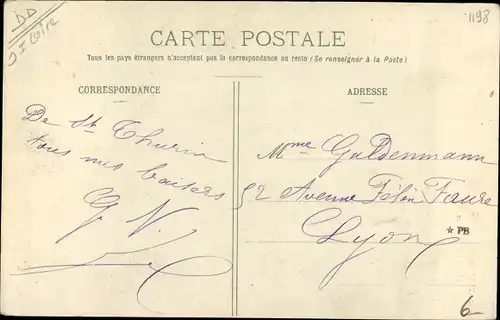 DD
CARTE POSTALE
Tous les pays étrangers n'acceptant pas la correspondance au recto (Se renseigner à la Poste)
CORRESPONDANCE
De St Thurin
tous mes baisers
G. N.
1198
ADRESSE
Mme Guldenmann
52 Avenue Félix Faure
Lyon
★ PB
6-